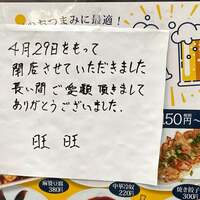 おつまみに最適！
4月29日をもって
閉店させていただきました
長い間ご愛顧頂きまして
ありがとうございました。
旺 旺
50円~
麻婆豆腐
380円
中華冷奴
220円
焼き餃子
300円